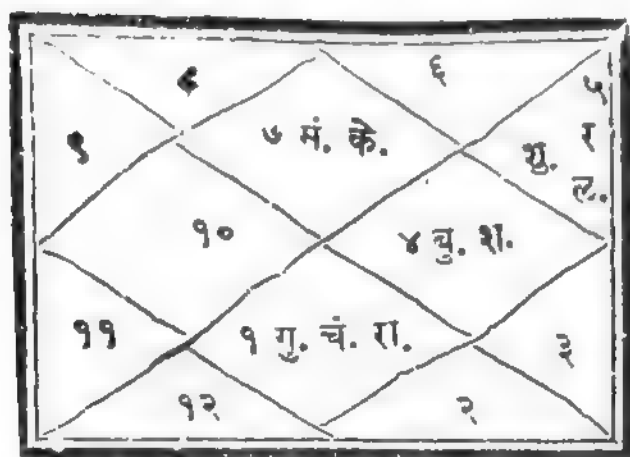 ८
६
५
७ मं. के.
र
९
शु.
ल.
१०
४ बु. श.
११
१ गु. चं. रा.
३
१२
२